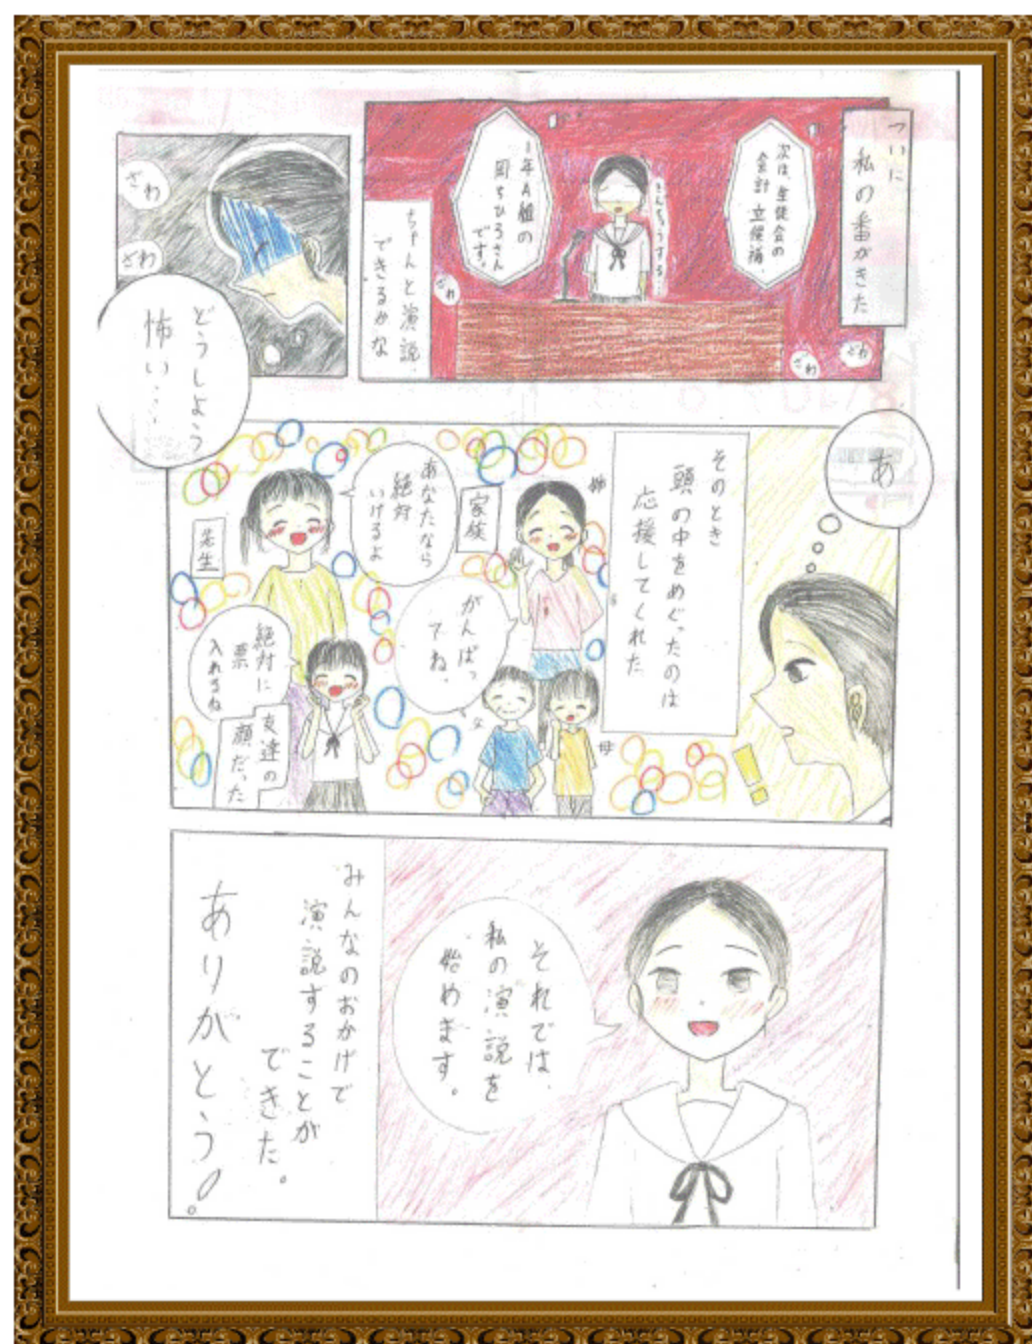 ついに
私の番がきた
次は、生徒会の
会計 立候補、
きんちょうする…
1年A組の
岡ちひろさん
です。
ちゃんと演説
できるかな
ざわ
ざわ
ざわ
ざわ
ざわ
どうしよう
怖い…
あ
そのとき
頭の中をめぐったのは
応援してくれた
姉
家族
がんばっ
てね、
父
母
あなたなら
絶対
いけるよ
先生
絶対に
票
入れるね
友達の
顔だった
それでは、
私の演説を
始めます。
みんなのおかげで
演説することが
できた。
ありがとう!